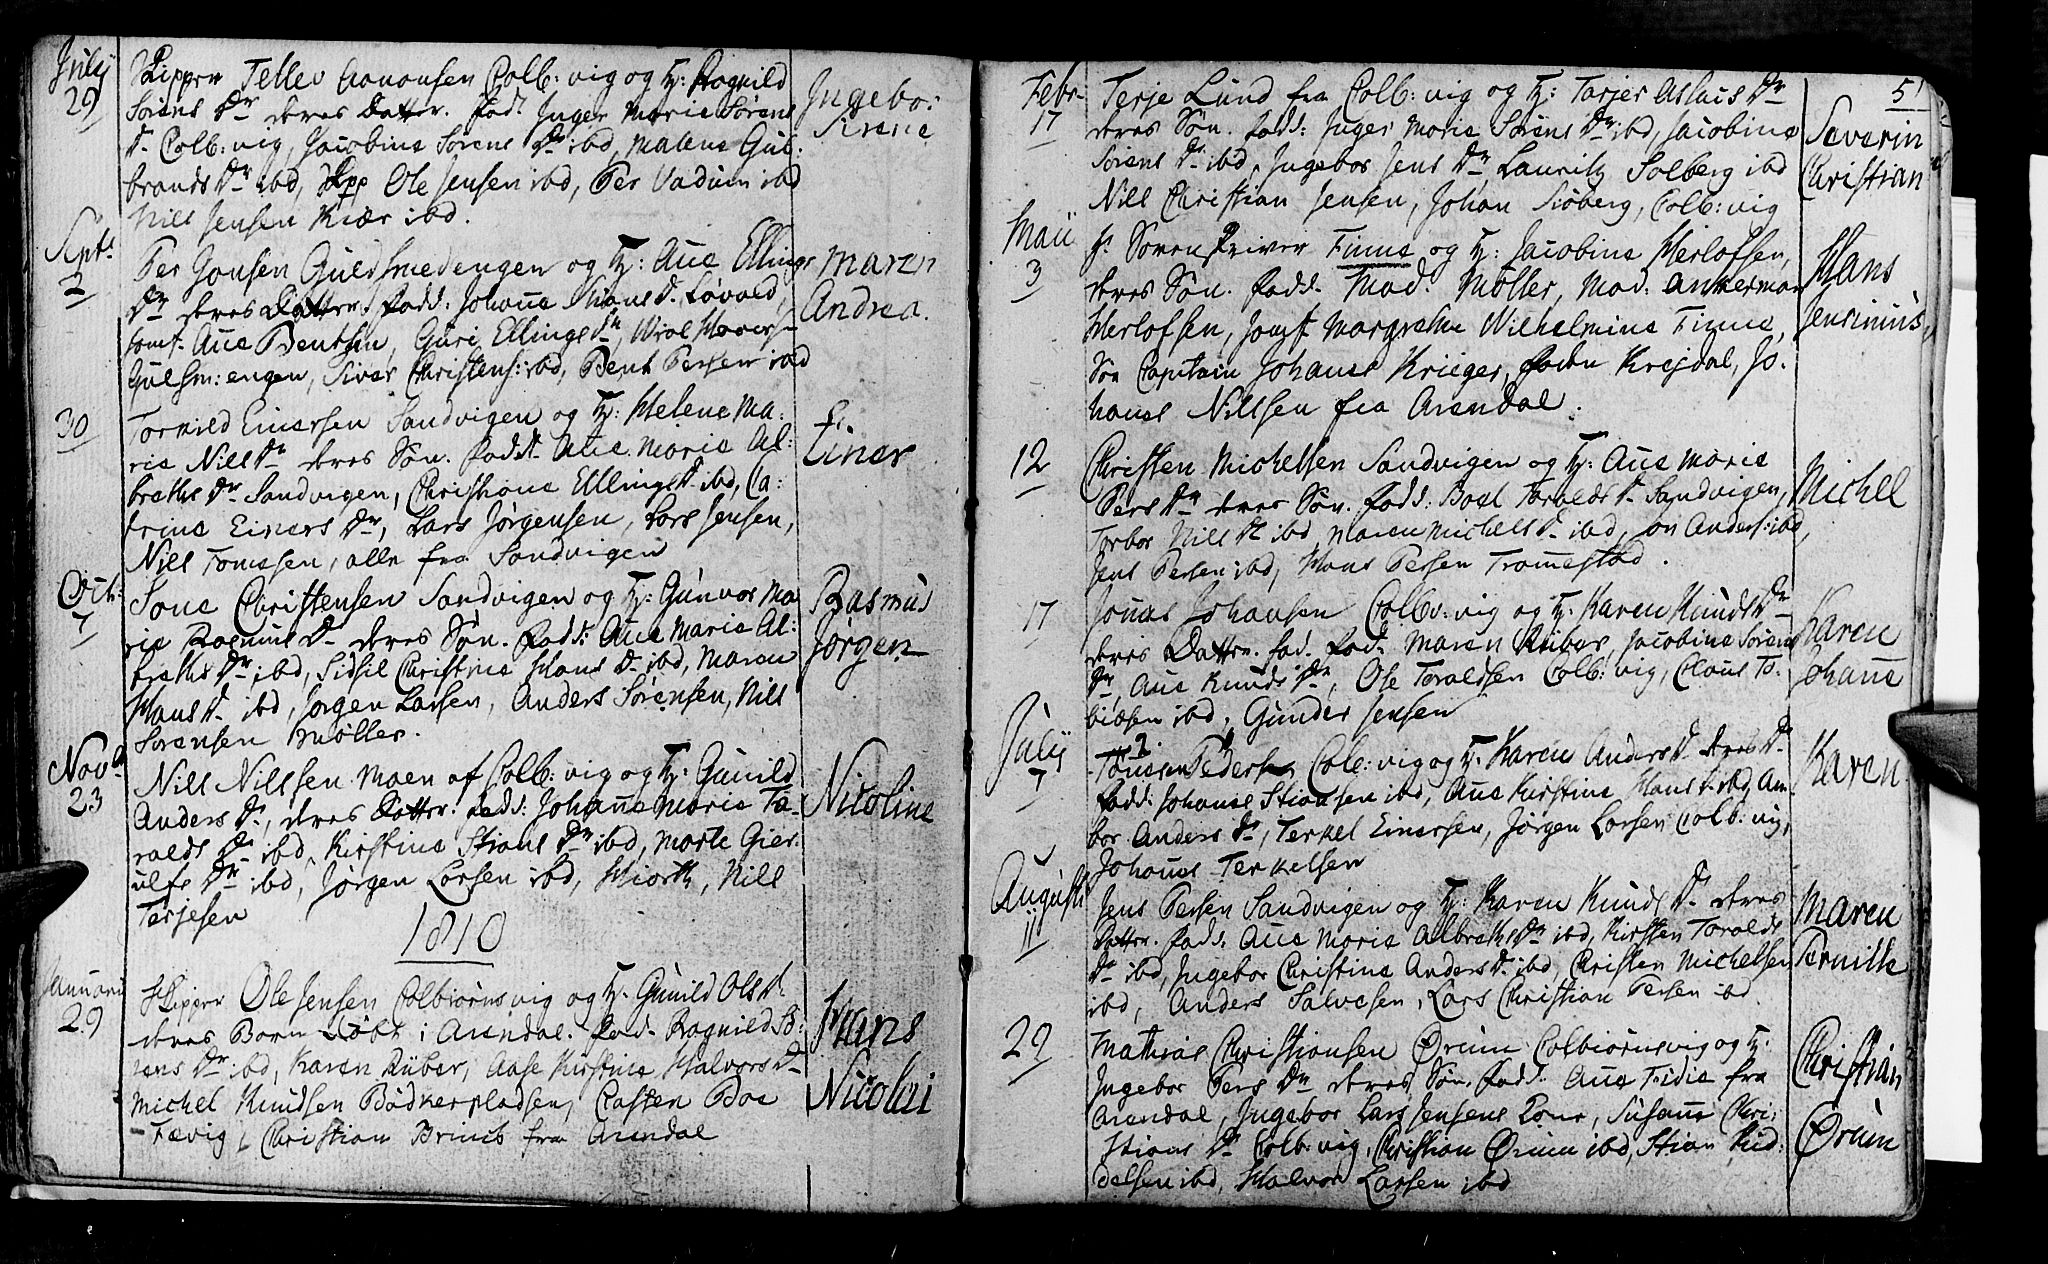 July
29
Skipper Tellev Aanonsen Colb: vig og H: Ragnild
Sørens Dr deres Datter. Fad. Inger Marie Sørens
D. Colb: vig, Jacobine Sørens Dr ibd, Malene Gul:
brands Dr ibd, Skpp Ole Jensen ibd, Per Vadum ibd
Nill Jensen Kiær ibd.
Ingebor
Sirene
Septr
2
Per Gonsen Guldsmedengen og H: Ane Ellings
Dr deres Datter. Fadd: Johanne Hans D. Løvold,
Ane Bentsen, Guri Ellings Dr,
Gulsm: engen, Siver Christens: ibd, Bent Persen ibd
Maren
Andrea.
30
Torkild Einersen Sandvigen og H: Helene Ma:
rie Nills Dr deres Søn. Fadd. Ane Marie Al:
breths Dr Sandvigen, Christiane Ellings D. ibd, Ca:
trine Einers Dr, Lars Jørgensen, Lars Jensen,
Nill Tomesen, alle fra Sandvigen
Ei
Einer
Octr:
7
Sone Christensen Sandvigen og H: Gunvor Ma
rie Rasmus D. deres Søn. Fadd: Ane Marie Al:
breths Dr ibd, Sidsil Christine Hans D. ibd, Maren
Hans D. ibd, Jørgen Larsen, Anders Sørensen, Nill
Sørensen Møller.
Rasmus
Jørgen
Novr
23
Nill Nillsen Moen af Colb: vig og H: Gunild
Anders D., deres Datter. Fadd: Johanne Marie Ta:
ralds D. ibd, Kirstine Stians Dr ibd, Marte Gier:
ulfs Dr ibd, Jørgen Larsen ibd, Hiorth, Nill
Terjesen
Nicoline
1810
Januarii
29
Skipper Ole Jensen Colbiørnsvig og H. Gunild Ols D.
deres Barn døbt i Arendal. Fad. Ragnild Sø:
rens Dr ibd, Karen Ruber, Aase Kirstine Halvors D.
Michel Knudsen Bødkerpladsen, Casten Boe
Fævig, Christian Brinch fra Arendal
Hans
Nicolai
5
Febr.
17
Terje Lund fra Colb: vig og H: Tarjer Aslacs Dr
deres Søn. Fadd: Inger Marie Sørens Dr ibd, Jacobine
Sørens D. ibd, Ingebor Jens Dr, Lauritz Solberg ibd
Nill Christian Jensen, Johan Siøberg, Colb: vig
Severin
Christian
Maii
3
Hr Sorenskriver Finne og H: Jacobine Herlofsen,
deres Søn. Fadd. Mad. Møller, Mad. Ankerman
Herlofsen, Jomf Margrethe Wilhelmine Finne,
Søe Capitain Johannes Krieger, Krejdal, Jo.
hannes Nillsen fra Arendal.
Hans
Jensinius
12
Christen Michelsen Sandvigen og H: Ane Marie
Pers Dr deres Søn. Fadd: Boel Taralds D. Sandvigen,
Torbor Nills D ibd, Maren Michels D. ibd, Jon Anders: ibd,
Jens Persen ibd, Hans Persen Tromestad.
Michel
17
Jonas Johansen Colb: vig og H: Karen Knuds Dr
deres Datter. Fad. Maren Ruber, Jacobine Sørens
Dr, Ane Knuds Dr, Ole Taraldsen Colb: vig, Claus To:
biæsen ibd, Gunder Jensen
Karen
Johanne
Julij
7
Tønesen Pedersen Colb: vig og H. Karen Anders D. deres D.
Fadd: Johanne Stiansen ibd, Ane Kirstine Hans D. ibd, Am
bor Anders Dr, Terkel Einersen, Jørgen Larsen Colb: vig,
Johannes Terkelsen
Karen
Augusti
11
Jens Persen Sandvigen og H: Karen Knuds D. deres
Datter. Fadd. Ane Marie Albreths Dr ibd, Kirsten Taralds
Dr ibd, Ingebor Christine Anders D. ibd, Christen Michelsen
ibd, Anders Salvesen, Lars Christian Persen ibd.
Maren
Pernille
29
Mathias Christiansen Ørum Colbiørnsvig og H.
Ingebor Pers Dr deres Søn. Fadd. Ane Fidie fra
Arendal, Ingebor Lars Jensens Kone, Susanne Chri:
stians D. Colb: vig, Christian Ørum ibd, Stian Rud:
delsen ibd, Halvor Larsen ibd
Christian
Ørum